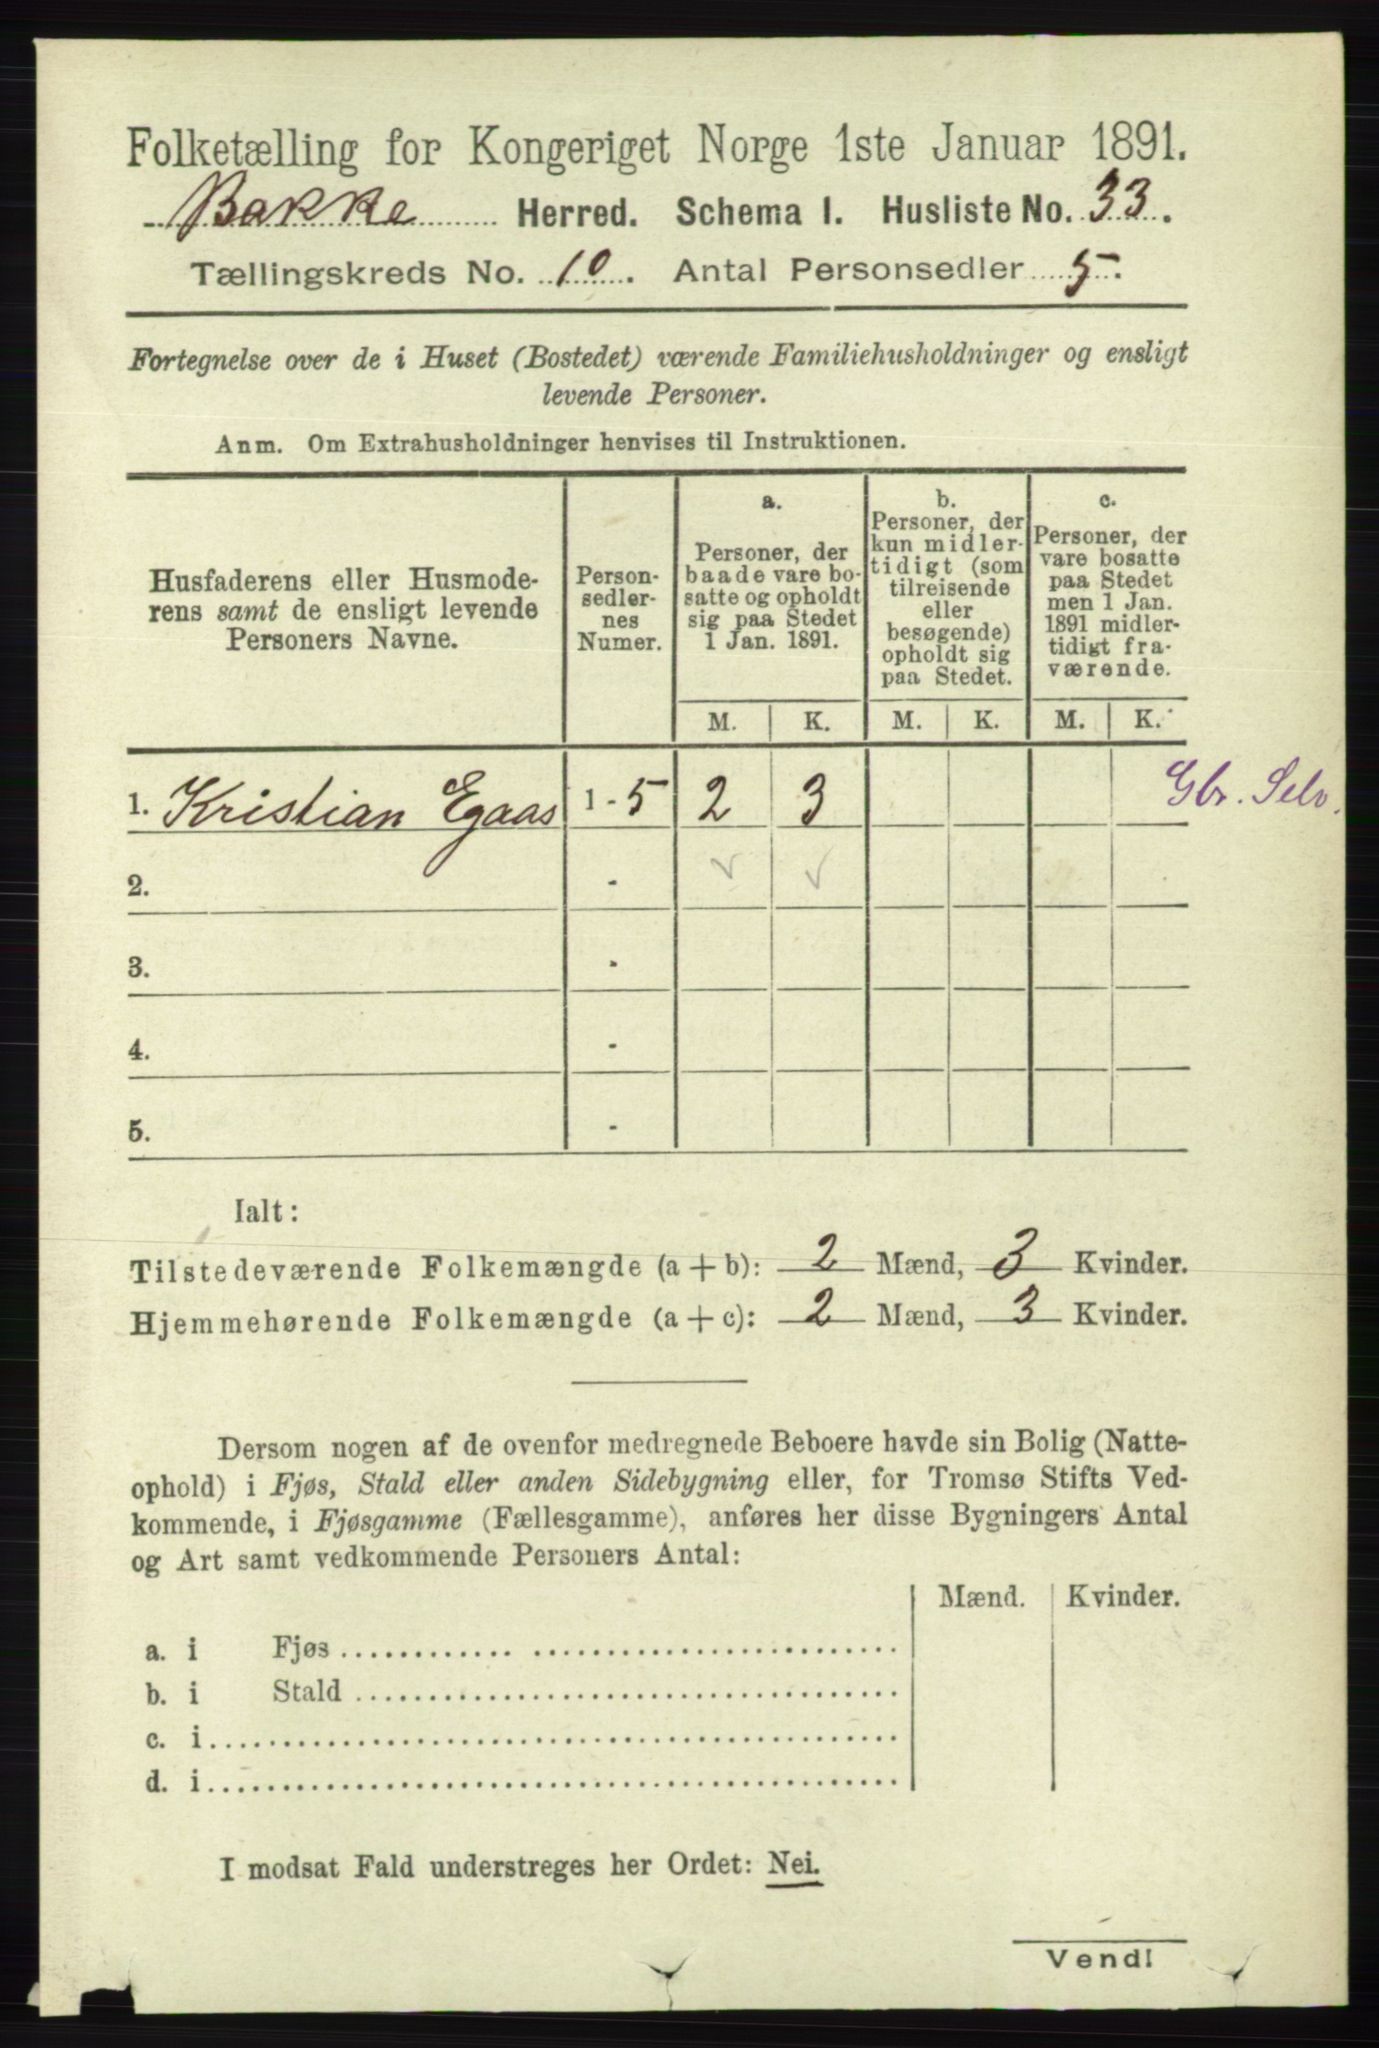 Folketælling for Kongeriget Norge 1ste Januar 1891.
Bakke Herred. Schema I. Husliste No. 33.
Tællingskreds No. 10. Antal Personsedler 5.
Fortegnelse over de i Huset (Bostedet) værende Familiehusholdninger og ensligt
levende Personer.
Anm. Om Extrahusholdninger henvises til Instruktionen.
Husfaderens eller Husmode-
rens samt de ensligt levende
Personers Navne.
Person-
sedler-
nes
Numer.
a.
Personer, der
baade vare bo-
satte og opholdt
sig paa Stedet
1 Jan. 1891.
b.
Personer, der
kun midler-
tidigt (som
tilreisende
eller
besøgende)
opholdt sig
paa Stedet.
c.
Personer, der
vare bosatte
paa Stedet
men 1 Jan.
1891 midler-
tidigt fra-
værende.
M. K. M. K. M. K.
1. Kristian Egaas 1 - 5 2 3 Gbr. Selv.
2. -
3. -
4. -
5. -
Ialt:
Tilstedeværende Folkemængde (a + b): 2 Mænd, 3 Kvinder.
Hjemmehørende Folkemængde (a + c): 2 Mænd, 3 Kvinder.
Dersom nogen af de ovenfor medregnede Beboere havde sin Bolig (Natte-
ophold) i Fjøs, Stald eller anden Sidebygning eller, for Tromsø Stifts Ved-
kommende, i Fjøsgamme (Fællesgamme), anføres her disse Bygningers Antal
og Art samt vedkommende Personers Antal:
Mænd. Kvinder.
a. i Fjøs
b. i Stald
c. i
d. i
I modsat Fald understreges her Ordet: Nei.
Vend!